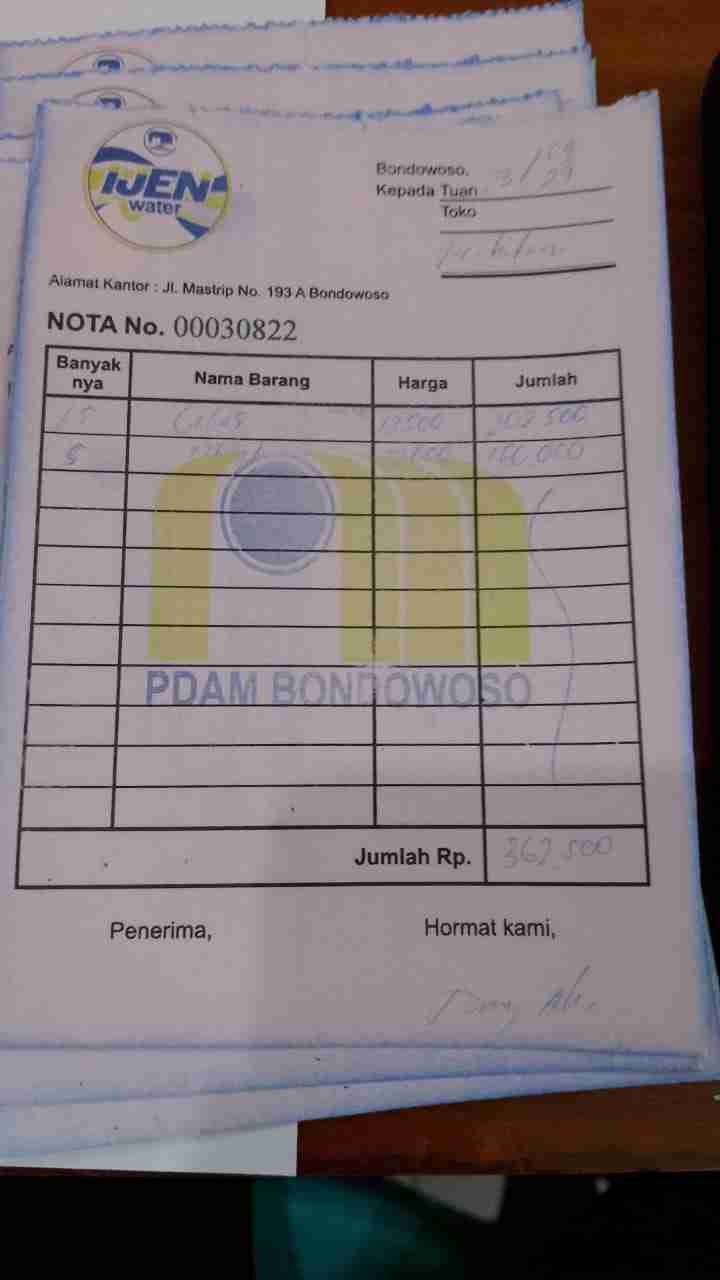 IJEN
water
Bondowoso,
Kepada Tuan
Toko
Alamat Kantor : Jl. Mastrip No. 193 A Bondowoso
NOTA No. 00030822
Banyak nya Nama Barang Harga Jumlah
15 Gelas 13500 202.500
5 160.000
PDAM BONDOWOSO
Jumlah Rp. 362.500
Penerima, Hormat kami,